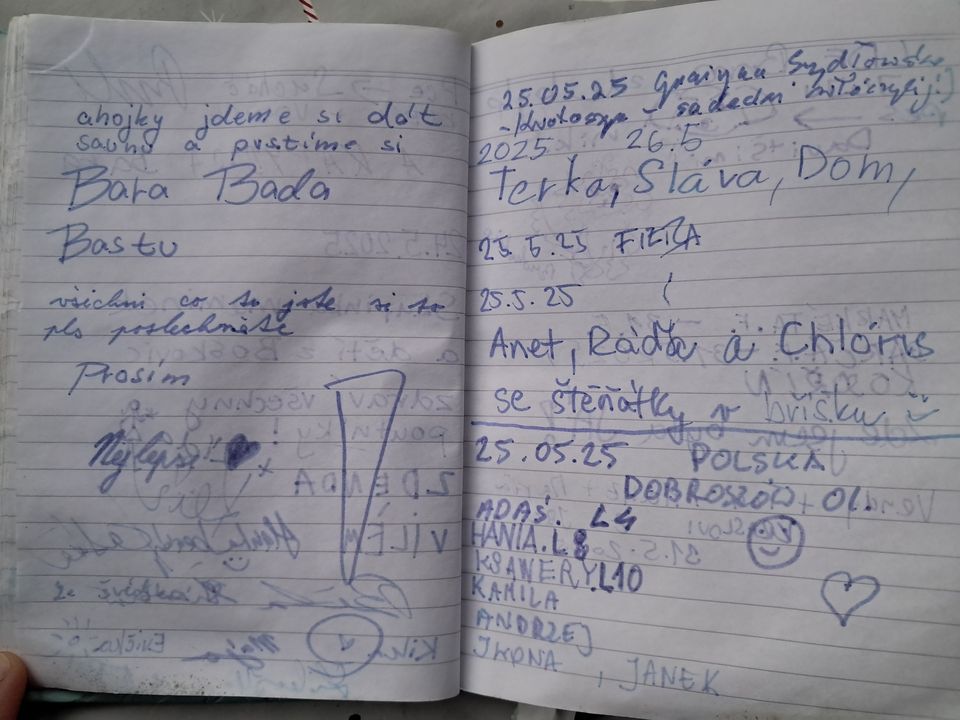 ahojky jdeme si dát
saunu a pustíme si
Bara Bada
Bastu
všichni co to jste si to
pls poslechněte
Prosím
Nejlepší
25.05.25
2025 26.5
Terka, Sláva, Dom,
25.5.25
25.5.25
Anet, Ráďa a Chlóris
se štěňátky v bříšku
25.05.25 POLSKA
DOBROSZÓW OL.
ADAŚ. L4
HANIA. L8
KSAWERY. L10
KAMILA
ANDRZEJ
IWONA, JANEK